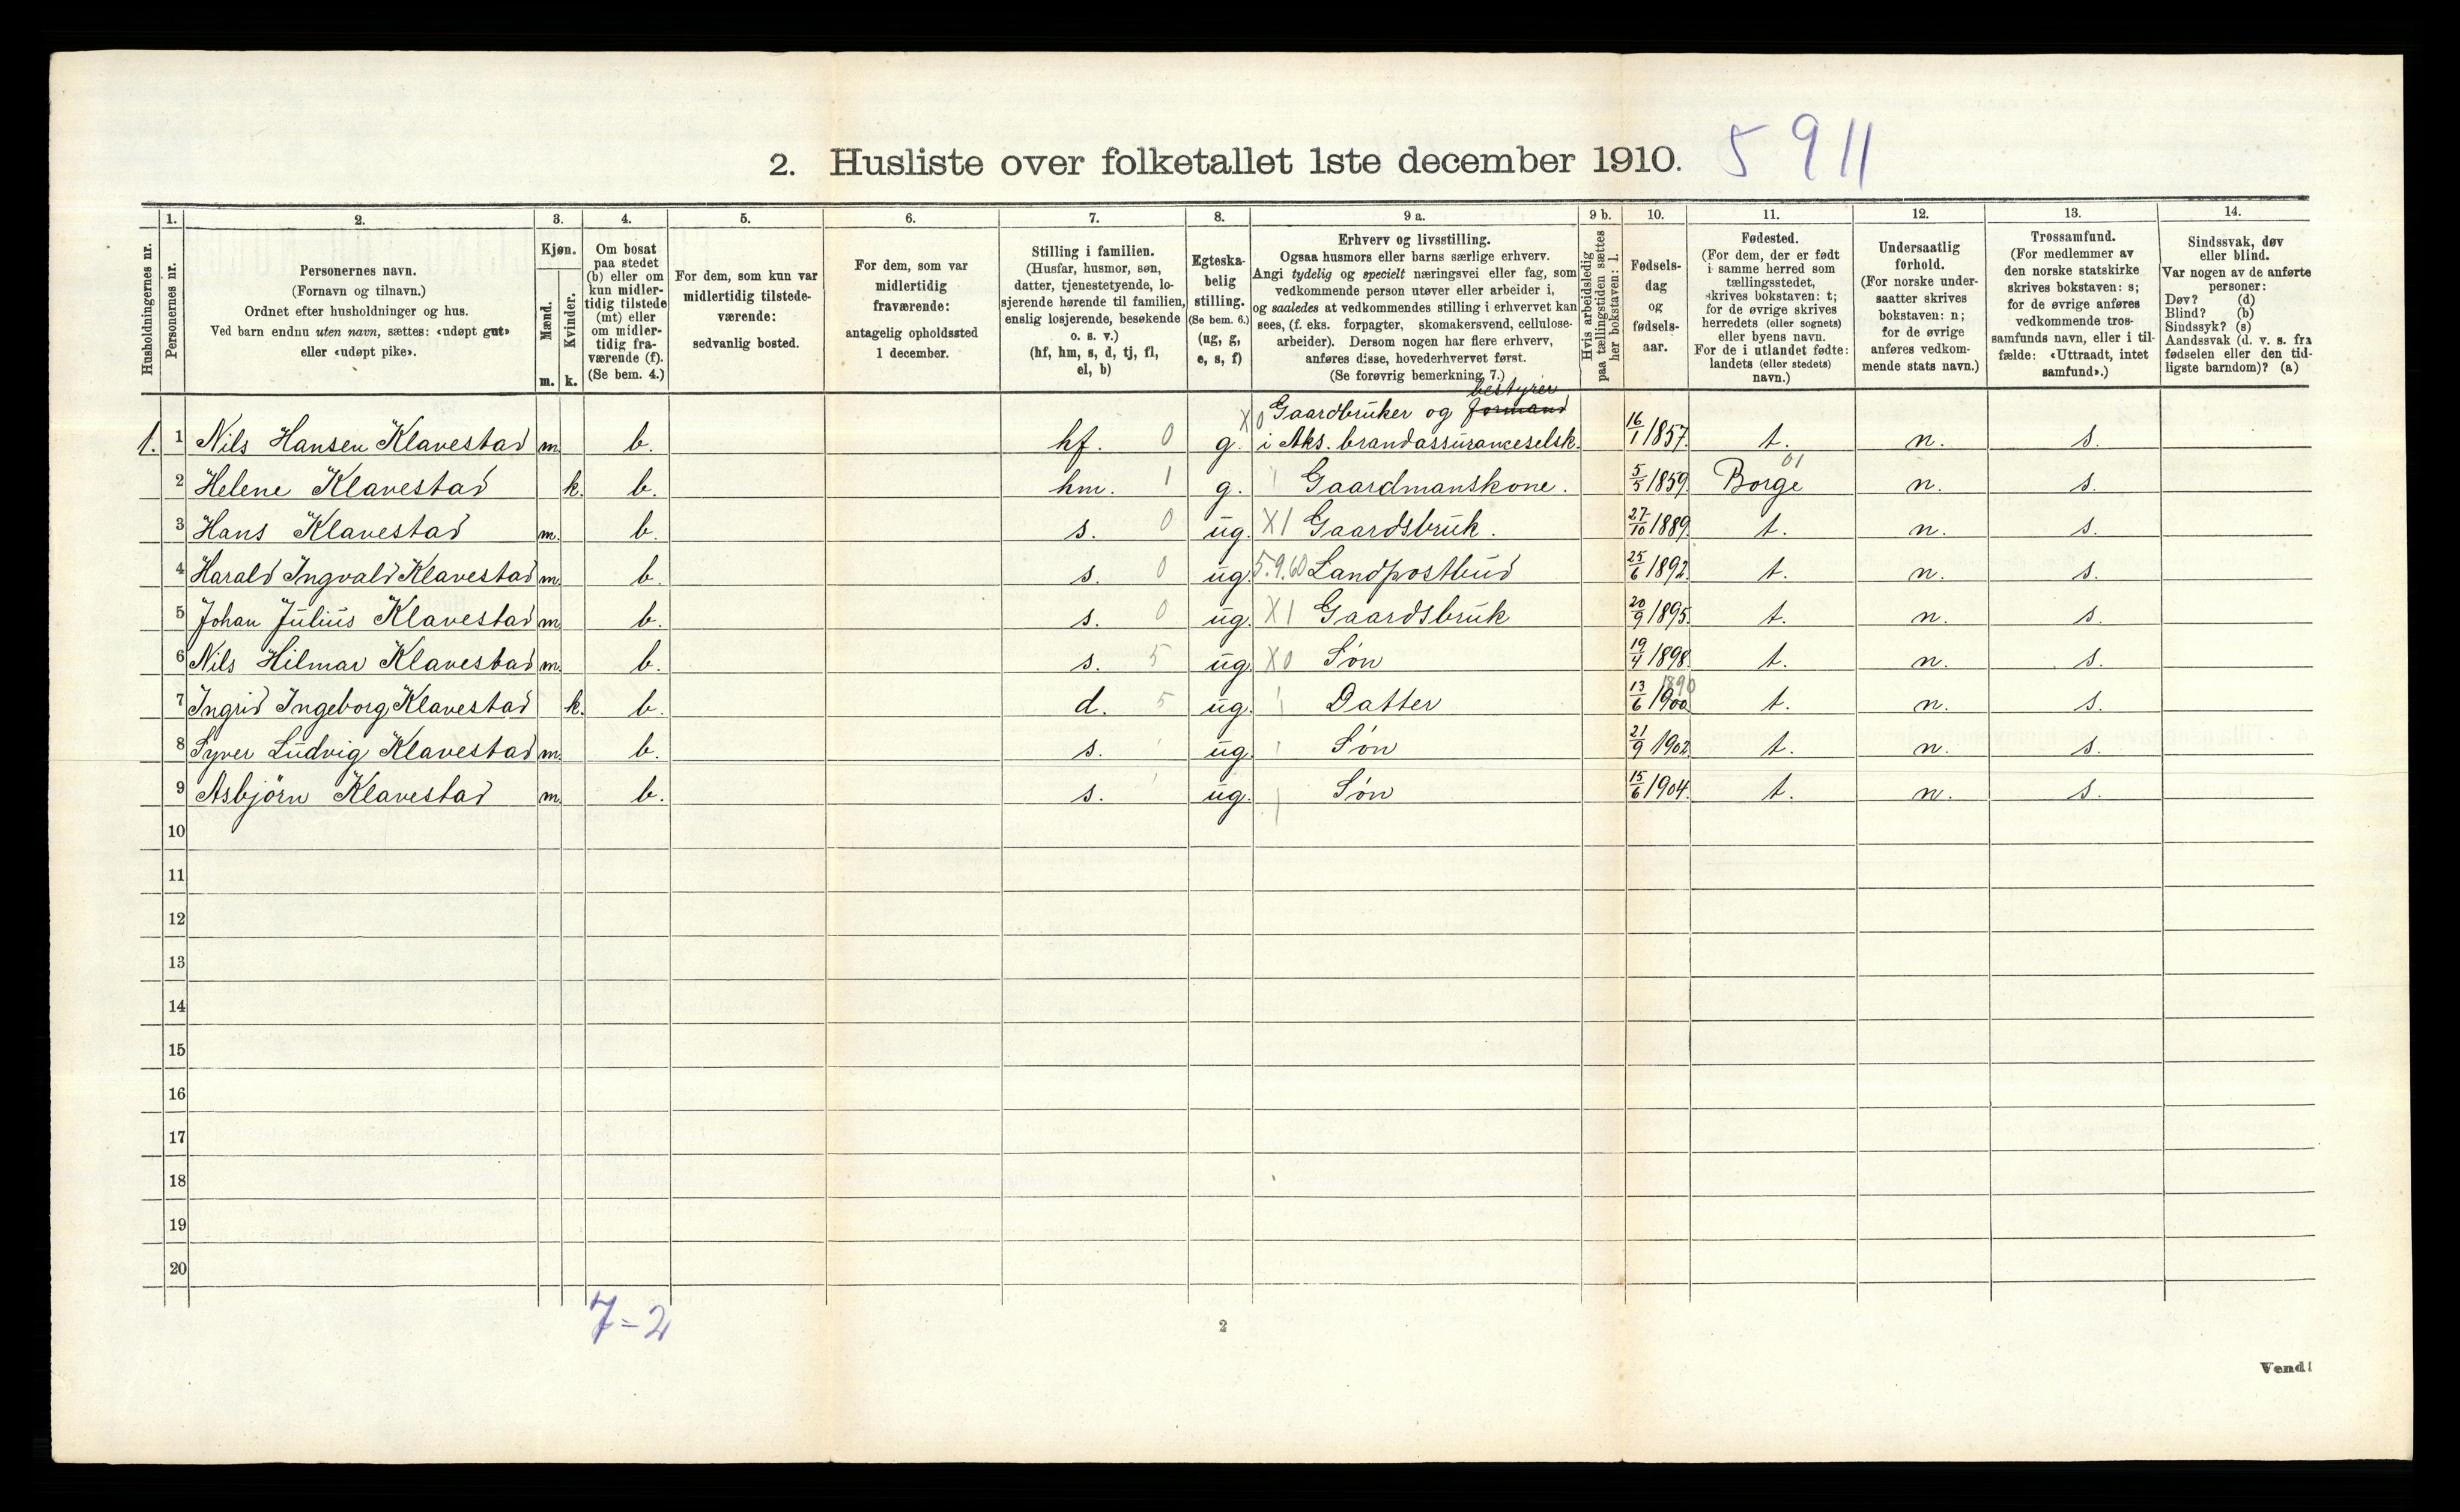 2. Husliste over folketallet 1ste december 1910. 5 9 11
1. 2. 3. 4. 5. 6. 7. 8. 9 a. 9 b. 10. 11. 12. 13. 14.
Husholdningernes nr.
Personernes nr.
Personernes navn.
(Fornavn og tilnavn.)
Ordnet efter husholdninger og hus.
Ved barn endnu uten navn, sættes: «udøpt gut»
eller «udøpt pike».
Kjøn.
Mænd.
Kvinder.
m. k.
Om bosat
paa stedet
(b) eller om
kun midler-
tidig tilstede
(mt) eller
om midler-
tidig fra-
værende (f).
(Se bem. 4.)
For dem, som kun var
midlertidig tilstede-
værende:
sedvanlig bosted.
For dem, som var
midlertidig
fraværende:
antagelig opholdssted
1 december.
Stilling i familien.
(Husfar, husmor, søn,
datter, tjenestetyende, lo-
sjerende hørende til familien,
enslig losjerende, besøkende
o. s. v.)
(hf, hm, s, d, tj, fl,
el, b)
Egteska-
belig
stilling.
(Se bem. 6.)
(ug, g,
e, s, f)
Erhverv og livsstilling.
Ogsaa husmors eller barns særlige erhverv.
Angi tydelig og specielt næringsvei eller fag, som
vedkommende person utøver eller arbeider i,
og saaledes at vedkommendes stilling i erhvervet kan
sees, (f. eks. forpagter, skomakersvend, cellulose-
arbeider). Dersom nogen har flere erhverv,
anføres disse, hovederhvervet først.
(Se forøvrig bemerkning 7.)
Hvis arbeidsledig
paa tællingstiden sættes
her bokstaven: l.
Fødsels-
dag
og
fødsels-
aar.
Fødested.
(For dem, der er født
i samme herred som
tællingsstedet,
skrives bokstaven: t;
for de øvrige skrives
herredets (eller sognets)
eller byens navn.
For de i utlandet fødte:
landets (eller stedets)
navn.)
Undersaatlig
forhold.
(For norske under-
saatter skrives
bokstaven: n;
for de øvrige
anføres vedkom-
mende stats navn.)
Trossamfund.
(For medlemmer av
den norske statskirke
skrives bokstaven: s;
for de øvrige anføres
vedkommende tros-
samfunds navn, eller i til-
fælde: «Uttraadt, intet
samfund».)
Sindssvak, døv
eller blind.
Var nogen av de anførte
personer:
Døv? (d)
Blind? (b)
Sindssyk? (s)
Aandssvak (d. v. s. fra
fødselen eller den tid-
ligste barndom)? (a)
bestyrer
X0 Gaardbruker og formand
1. 1 Nils Hansen Klavestad m. b. hf. 0 g. i Aks. brandassuranceselsk. 16/1 1857. t. n. s.
2 Helene Klavestad k. b. hm. 1 g. Gaardmanskone. 5/5 1859. Borge 01 n. s.
3 Hans Klavestad m. b. s. 0 ug. X1 Gaardsbruk. 27/10 1889. t. n. s.
4 Harald Ingvald Klavestad m. b. s. 0 ug. 5.9.60 Landpostbud 25/6 1892. t. n. s.
5 Johan Julius Klavestad m. b. s. 0 ug. X1 Gaardsbruk 20/9 1895. t. n. s.
6 Nils Hilmar Klavestad m. b. s. 5 ug. X0 Søn 19/4 1898. t. n. s.
7 Ingrid Ingeborg Klavestad k. b. d. 5 ug. Datter 13/6 1900 1890 t. n. s.
8 Syver Ludvig Klavestad m. b. s. ug. Søn 21/9 1902. t. n. s.
9 Asbjörn Klavestad m. b. s. ug. Søn 15/6 1904. t. n. s.
10
11
12
13
14
15
16
17
18
19
20
7=2
2
Vend!